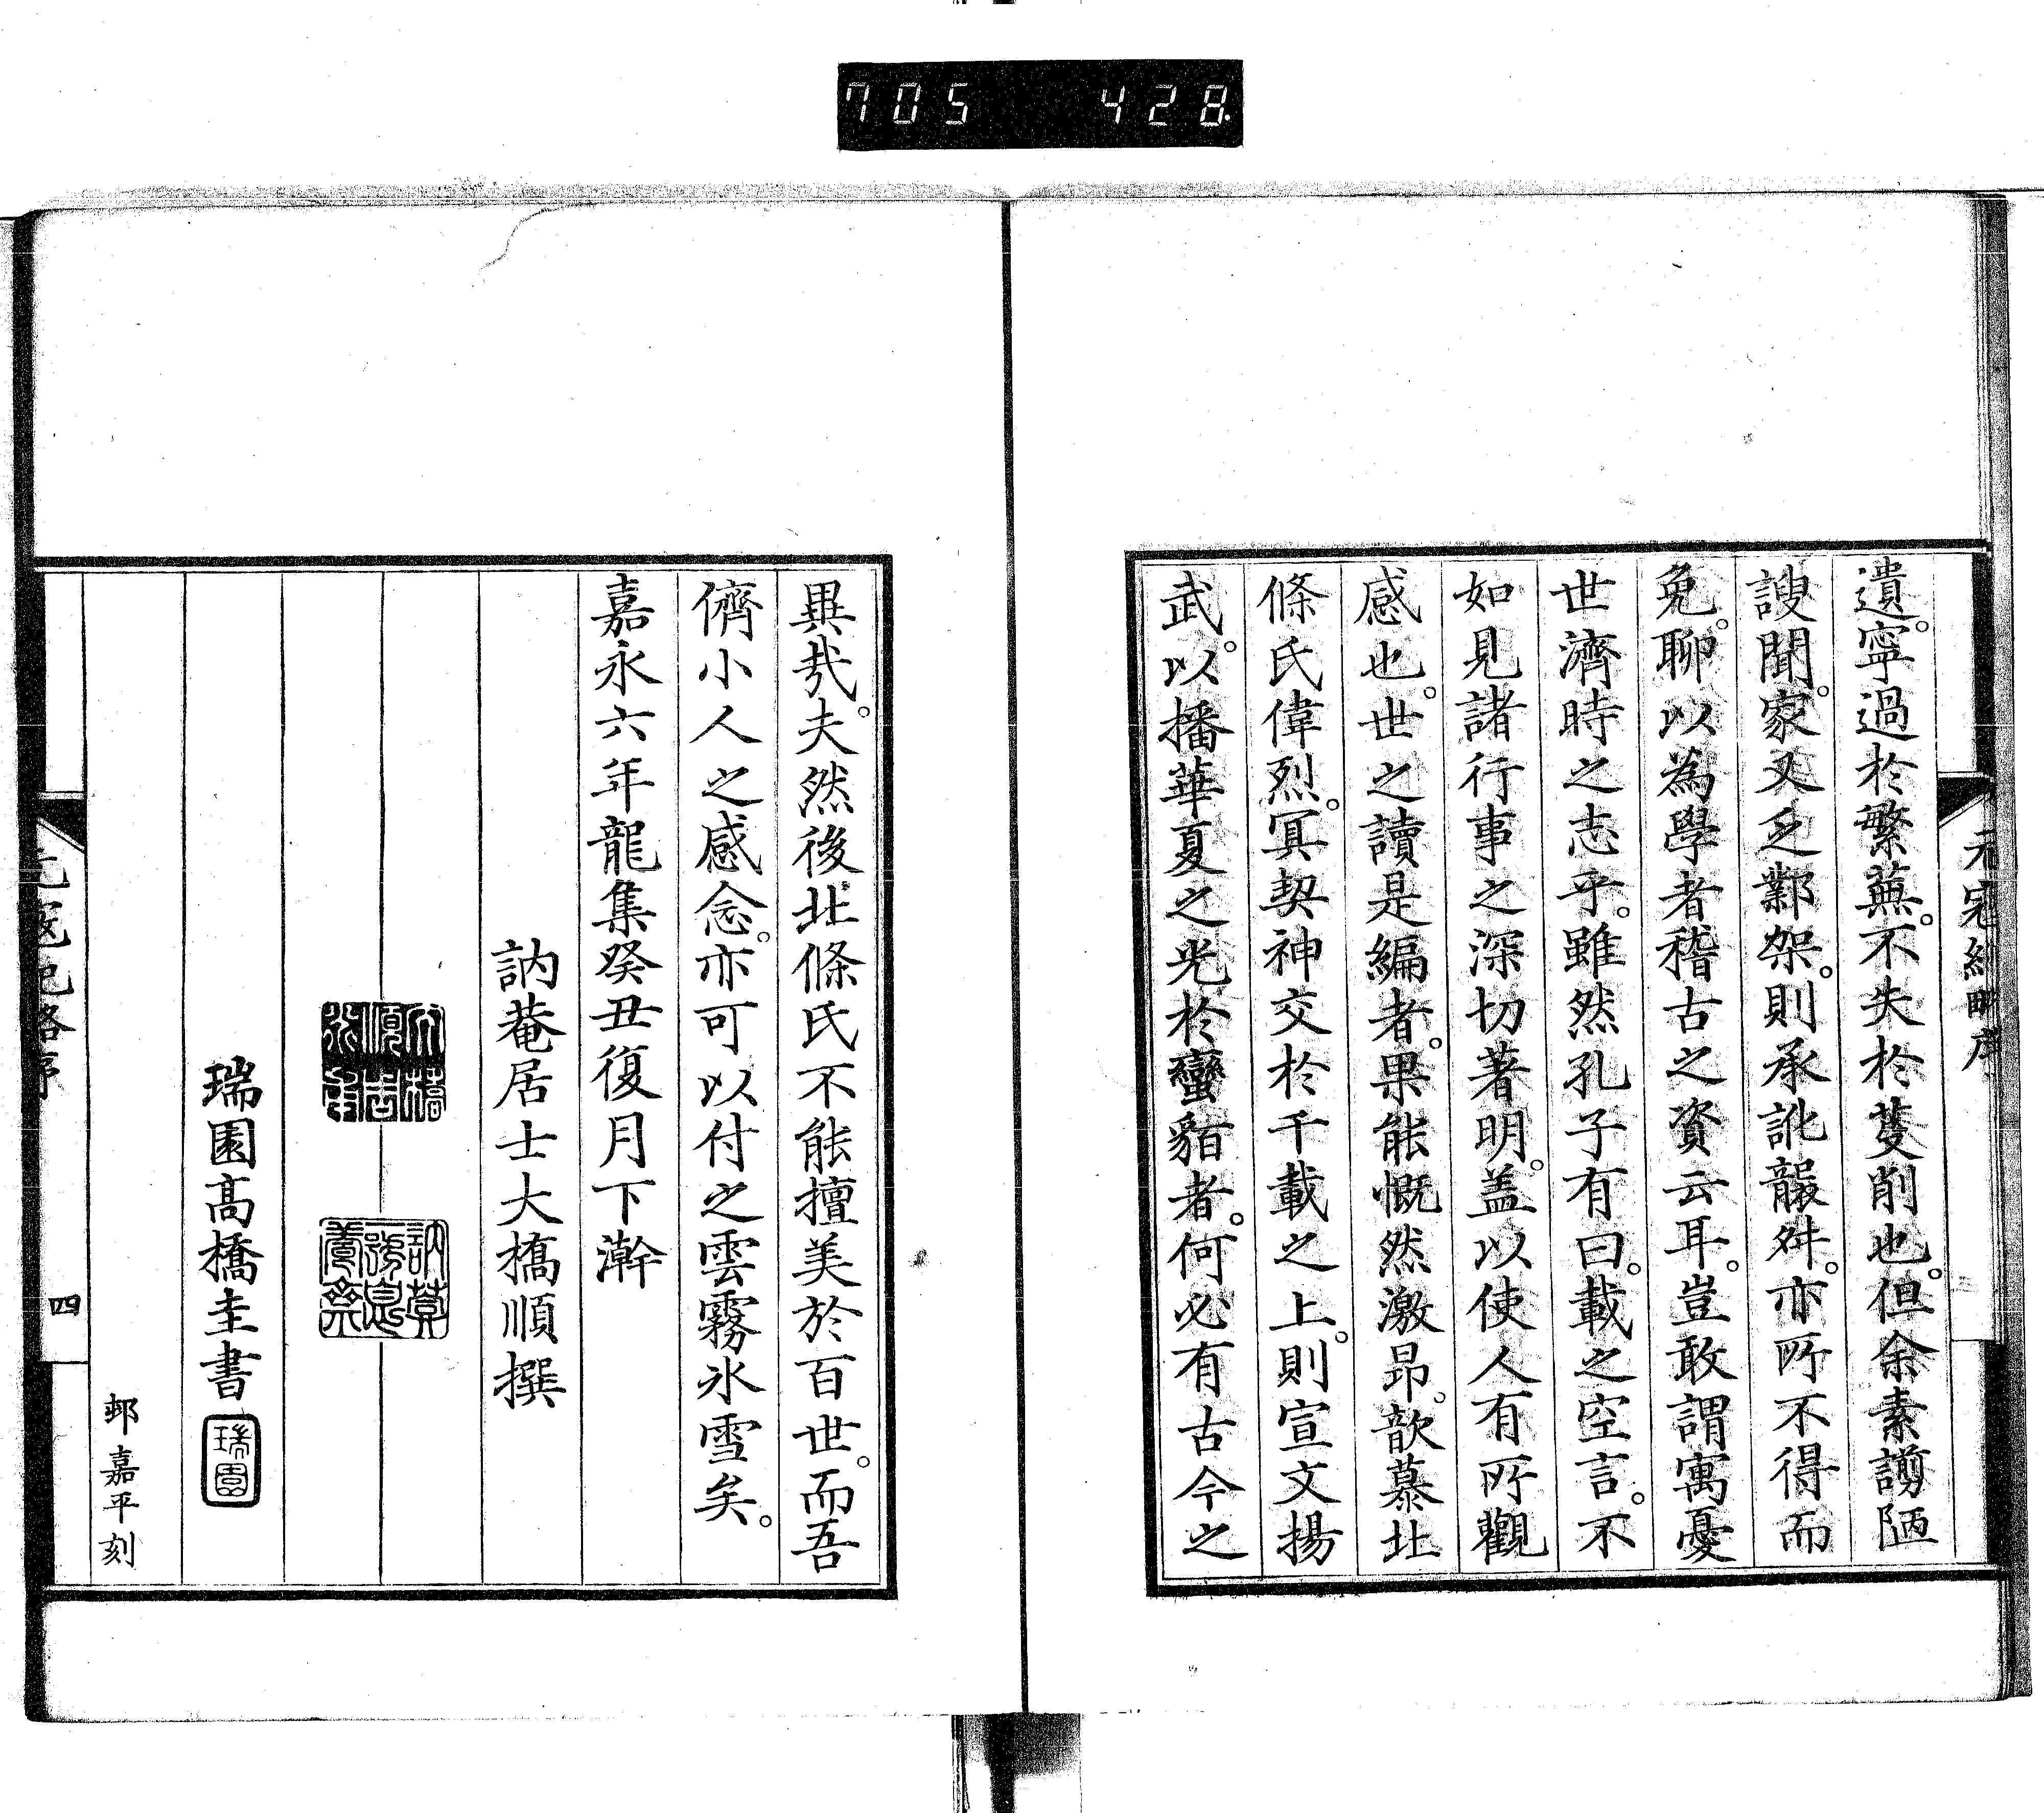 705 428
元寇紀略序
遺。寧過於繁蕪。不失於芟削也。但余素謭陋
謏聞。家又乏鄴架。則承訛襲舛。亦所不得而
免。聊以為學者稽古之資云耳。豈敢謂寓憂
世濟時之志乎。雖然孔子有曰。載之空言。不
如見諸行事之深切著明。蓋以使人有所觀
感也。世之讀是編者。果能慨然激昂。歆慕北
條氏偉烈。冥契神交於千載之上。則宣文揚
武。以播華夏之光於蠻貊者。何必有古今之
異哉。夫然後北條氏不能擅美於百世。而吾
儕小人之感念。亦可以付之雲霧氷雪矣。
嘉永六年龍集癸丑復月下澣
訥菴居士大橋順撰
瑞園高橋圭書
瑞園
邨嘉平刻
元寇紀略序
四